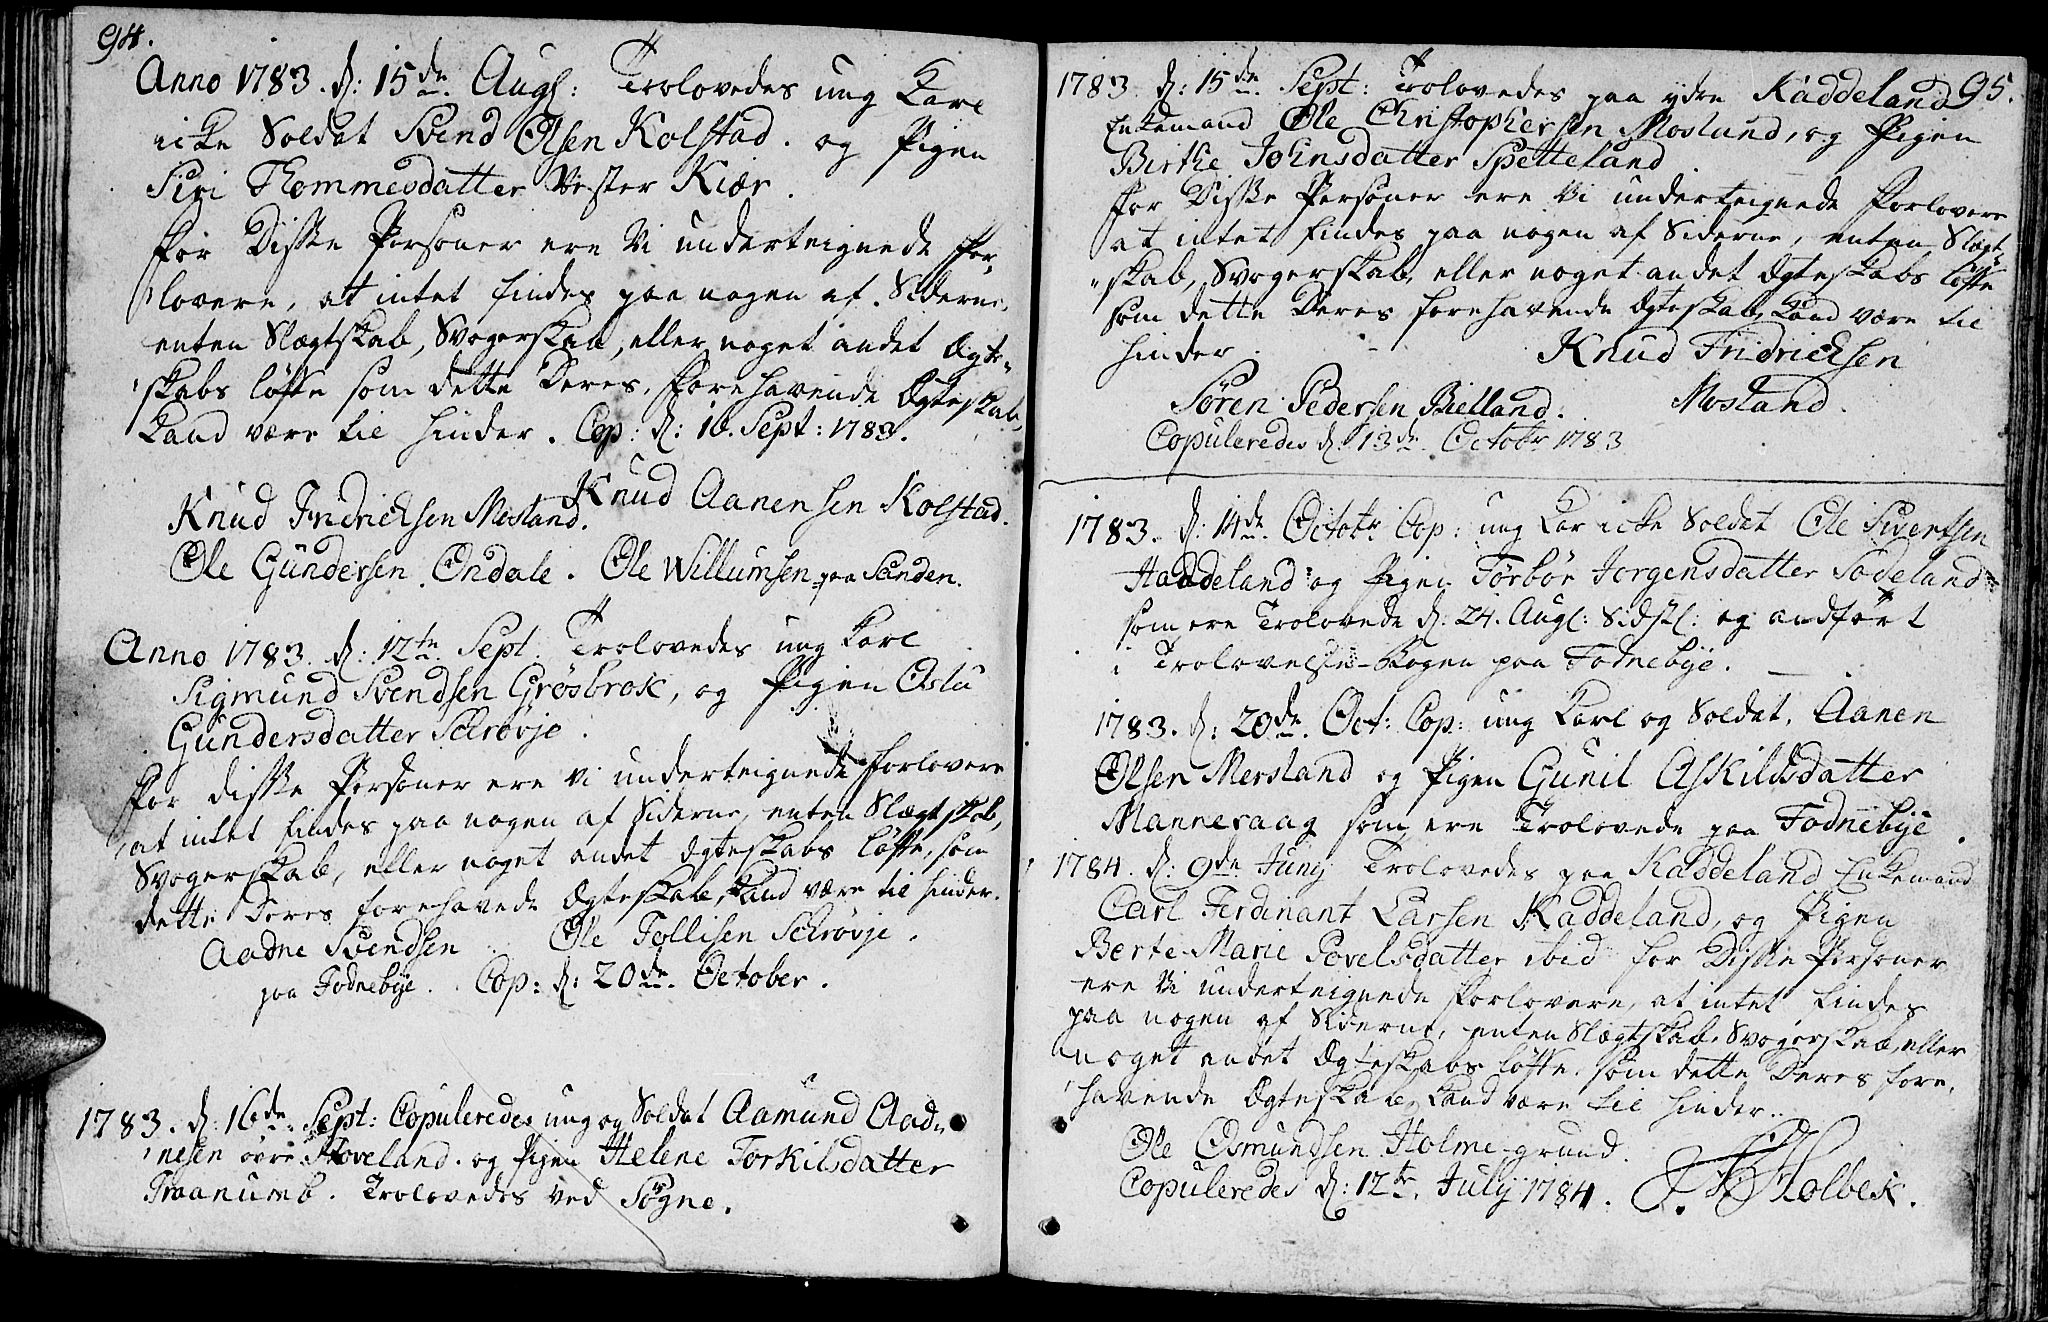 94.
Anno 1783. d: 15de Augs: Trolovedes ung Karl
icke Soldat Svend Olsen Kolstad. og Pigen
Siri Thommesdatter Vester Kiær.
For Diske Personer ere Vi underteignede For„
lovere, at intet findes paa nogen af Siderne,
enten Slægtskab, Svogerskab, eller noget andet Ægte„
skabs løfte som dette Deres, forehavende Ægteskab,
Kand være til hinder. Cop: d: 16. Sept: 1783.
Knud Aanensen Kolstad.
Knud Fridricksen Mosland.
Ole Gundersen Ondale. Ole Willumsen paa Sanden.
Anno 1783. d: 12te Sept: Trolovedes ung Karl
Sigmund Svendsen Grøsbrok, og Pigen Oslu
Gundersdatter Schrøvje.
For diske Personer ere vi underteignede Forlovere
at intet findes paa nogen af Siderne, enten Slægtskab,
Svogerskab, eller noget andet Ægteskabs løfte, som
dette Deres forehavede Ægteskab, Kand være til hinder.
Aadne Svendsen Ole Tollisen Schrøvje.
paa Fodnebÿe. Cop: d: 20de October.
1783. d: 16de Sept: Copuleredes ung og Soldat Aamund Aad„
nesen øvre Hoveland. og Pigen Helene Torkilsdatter
Tranumb. Trolovedes ved Søgne.
95.
1783. d: 15de Sept: Trolovedes paa ydre Kaddeland
Enkemand Ole Christophersen Moslund, og Pigen
Birthe Johnsdatter Spetteland
For Diske Personer ere Vi underteignede Forlovere
at intet findes paa nogen af Siderne, enten Slægt
„skab, Svogerskab, eller noget andet Ægteskabs løfte
som dette Deres forehavende Ægteskab, Kand være til
hinder. Knud Fridricksen
Søren Pedersen Bielland. Mosland.
Copuleredes d: 13de Octobr 1783
1783. d: 14de Octobr Cop: ung Kar icke Soldat Ole Sivertsen
Haddeland og Pigen Torbør Jorgensdatter Sodeland
som ere Trolovede d: 24. Augs: Sidstl: og andført
i Trolovelse-Bogen paa Fodnebÿe.
1783. d: 20de Oct: Cop: ung Karl og Soldat, Aanen
Olsen Mersland og Pigen Gunil Askildsdatter
Manneraag som ere Trolovede paa Fodnebÿe.
1784. d: 9de Junÿ Trolovedes paa Kaddeland Enkemand
Carl Ferdinant Larsen Kaddeland, og Pigen
Berte Marie Povelsdatter ibid for Diske Personer
ere Vi underteignede Forlovere, at intet findes
paa nogen af Siderne, enten Slægtskab, Svogerskab, eller
noget andet Ægteskabs løfte, som dette Deres fore„
havende Ægteskab, Kand være til hinder.
Ole Osmundsen Holme-grund.
Copuleredes d: 12te Julÿ 1784. Holbek.